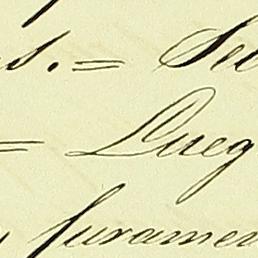 s. = Se
= Lueg
juramen